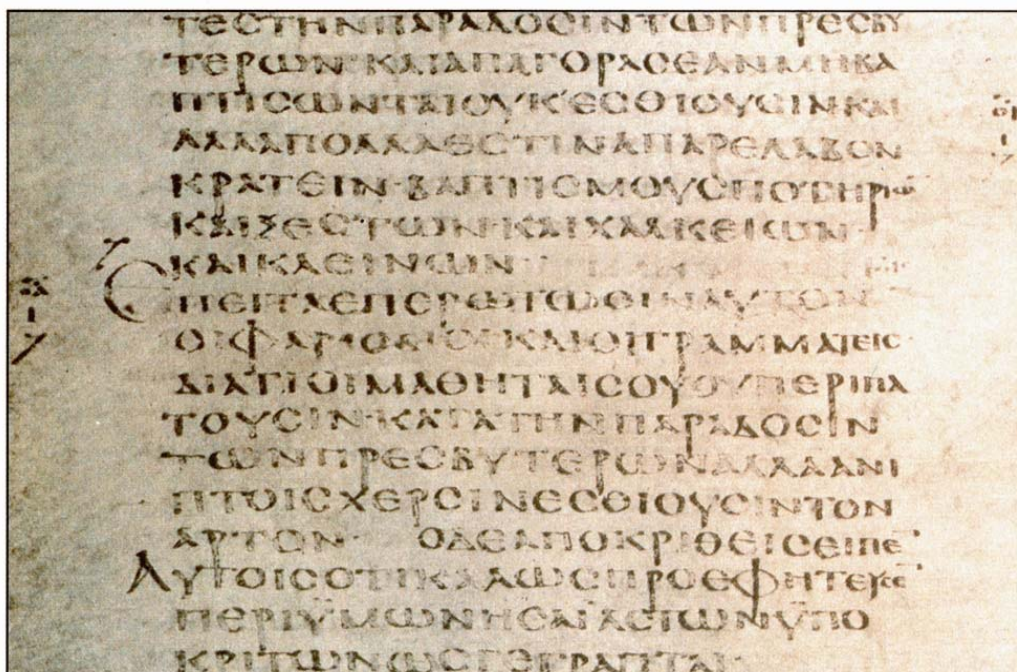 ΤΕϹΤΗΝΠΑΡΑΔΟϹΙΝΤΩΝΠΡΕϹΒΥ
ΤΕΡΩΝ·ΚΑΙΑΠΑΓΟΡΑϹΕΑΝΜΗΒΑ
ΠΤΙϹΩΝΤΑΙΟΥΚΕϹΘΙΟΥϹΙΝΚΑΙ
ΑΛΛΑΠΟΛΛΑΕϹΤΙΝΑΠΑΡΕΛΑΒΟΝ
ΚΡΑΤΕΙΝ·ΒΑΠΤΙϹΜΟΥϹΠΟΤΗΡΙω̅
ΚΑΙΞΕϹΤΩΝ·ΚΑΙΧΑΛΚΕΙΩΝ·
ΚΑΙΚΛΕΙΝΩΝ
ΕΠΕΙΤΑΕΠΕΡΩΤΩϹΙΝΑΥΤΟΝ
ΟΙΦΑΡΙϹΑΙΟΙΚΑΙΟΙΓΡΑΜΜΑΤΕΙϹ·
ΔΙΑΤΙΟΙΜΑΘΗΤΑΙϹΟΥΟΥΠΕΡΙΠΑ
ΤΟΥϹΙΝ·ΚΑΤΑΤΗΝΠΑΡΑΔΟϹΙΝ
ΤΩΝΠΡΕϹΒΥΤΕΡΩΝΑΛΛΑΑΝΙ
ΠΤΟΙϹΧΕΡϹΙΝΕϹΘΙΟΥϹΙΝΤΟΝ
ΑΡΤΟΝ· ΟΔΕΑΠΟΚΡΙΘΕΙϹΕΙΠΕ̅
ΑΥΤΟΙϹΟΤΙΚΑΛΩϹΠΡΟΕΦΗΤΕΥϹΕ̅
ΠΕΡΙΫΜΩΝΗϹΑΪΑϹΤΩΝΫΠΟ
ΚΡΙΤΩΝΩϹΓΕΓΡΑΠΤΑΙ·